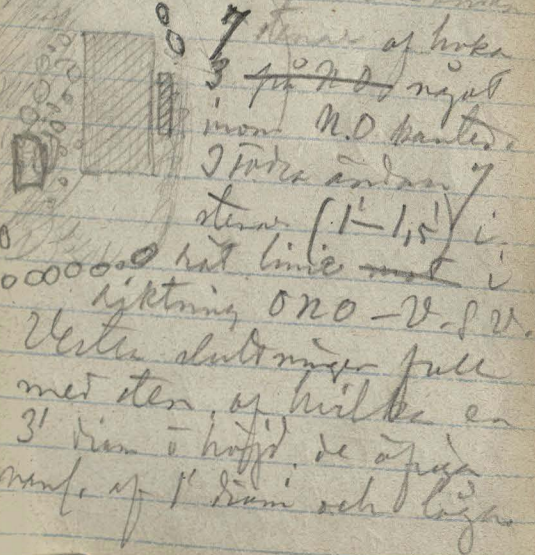 7 stenar af hvilka
3 på N.O. något
inom N.O. kanten.
I södra ändan 7
stenar (1'–1,5') i
rät linie mot i
riktning ONO – V.S.V.
Vestra sluttningen full
med sten, af hvilka en
3' diam o höjd, de öfriga
af 1' diam och låga